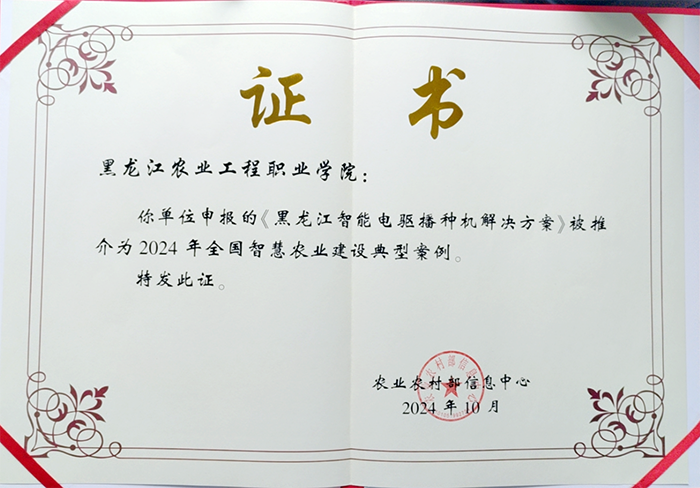 证 书
黑龙江农业工程职业学院：
你单位申报的《黑龙江智能电驱播种机解决方案》被推
介为2024年全国智慧农业建设典型案例。
特发此证。
农业农村部信息中心
2024年10月